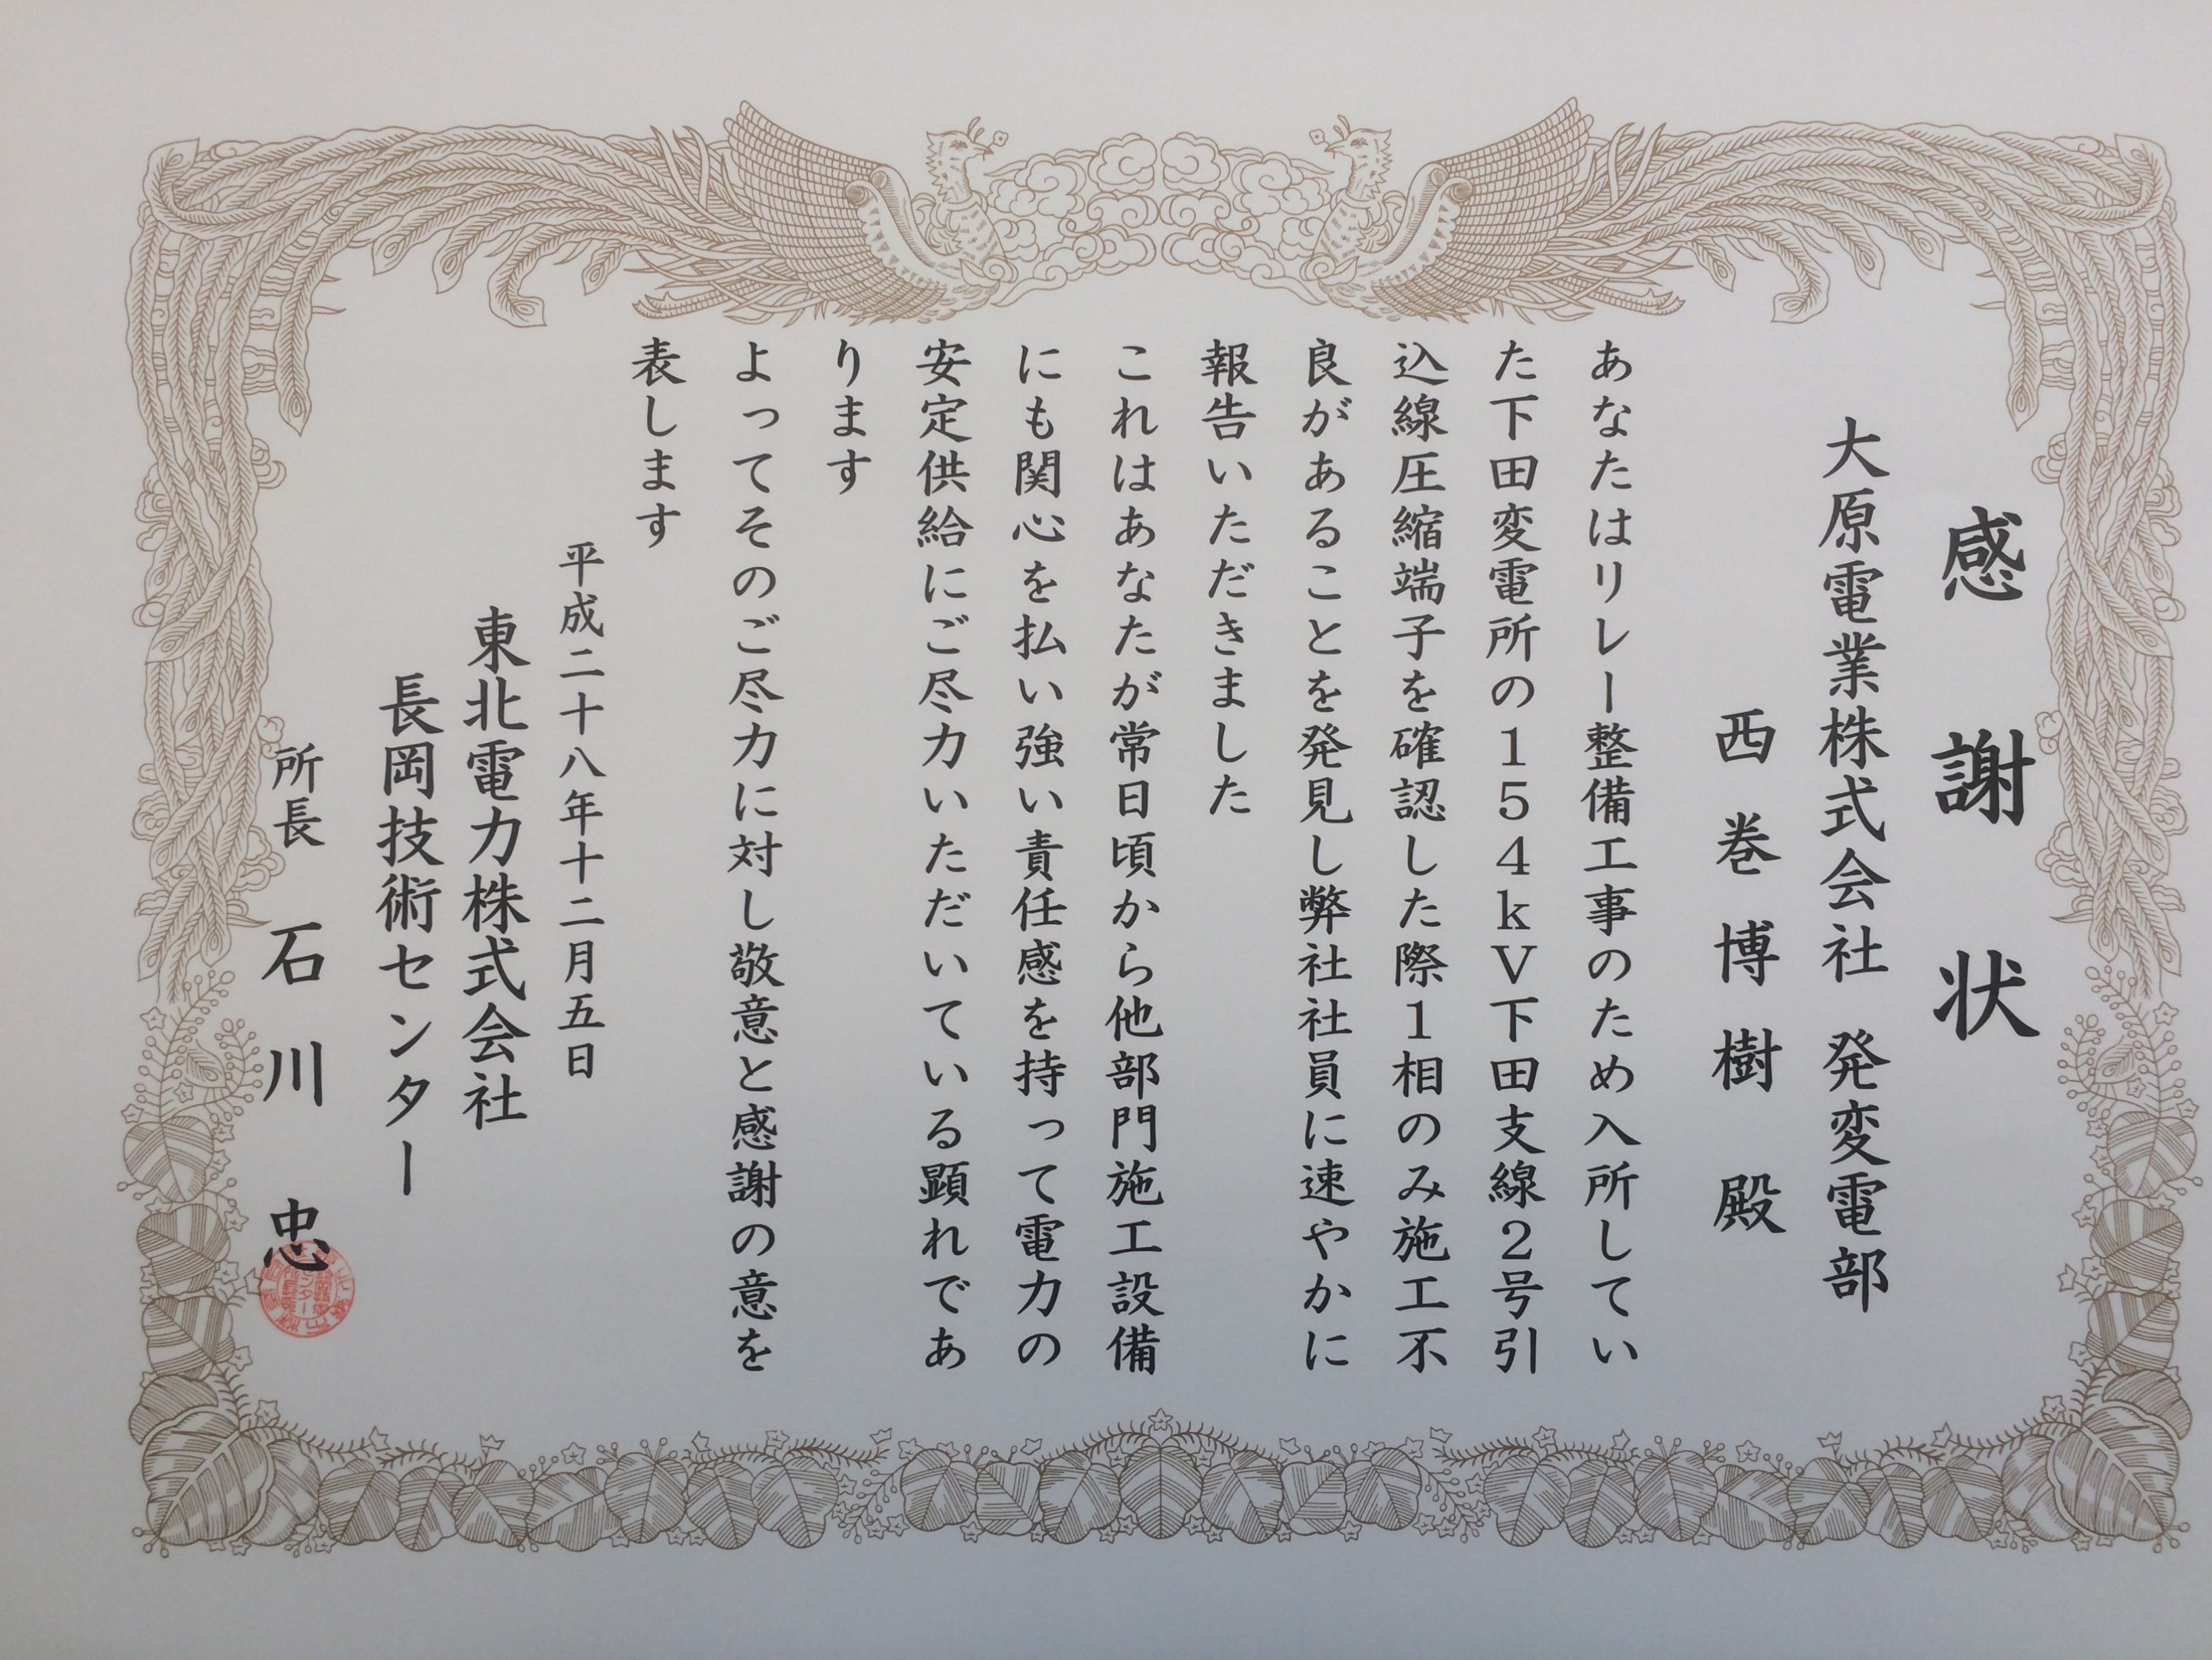 感謝状
大原電業株式会社 発変電部
西巻博樹 殿
あなたはリレー整備工事のため入所してい
た下田変電所の154kV下田支線2号引
込線圧縮端子を確認した際1相のみ施工不
良があることを発見し弊社社員に速やかに
報告いただきました
これはあなたが常日頃から他部門施工設備
にも関心を払い強い責任感を持って電力の
安定供給にご尽力いただいている顕れであ
ります
よってそのご尽力に対し敬意と感謝の意を
表します
平成二十八年十二月五日
東北電力株式会社
長岡技術センター
所長 石川 忠